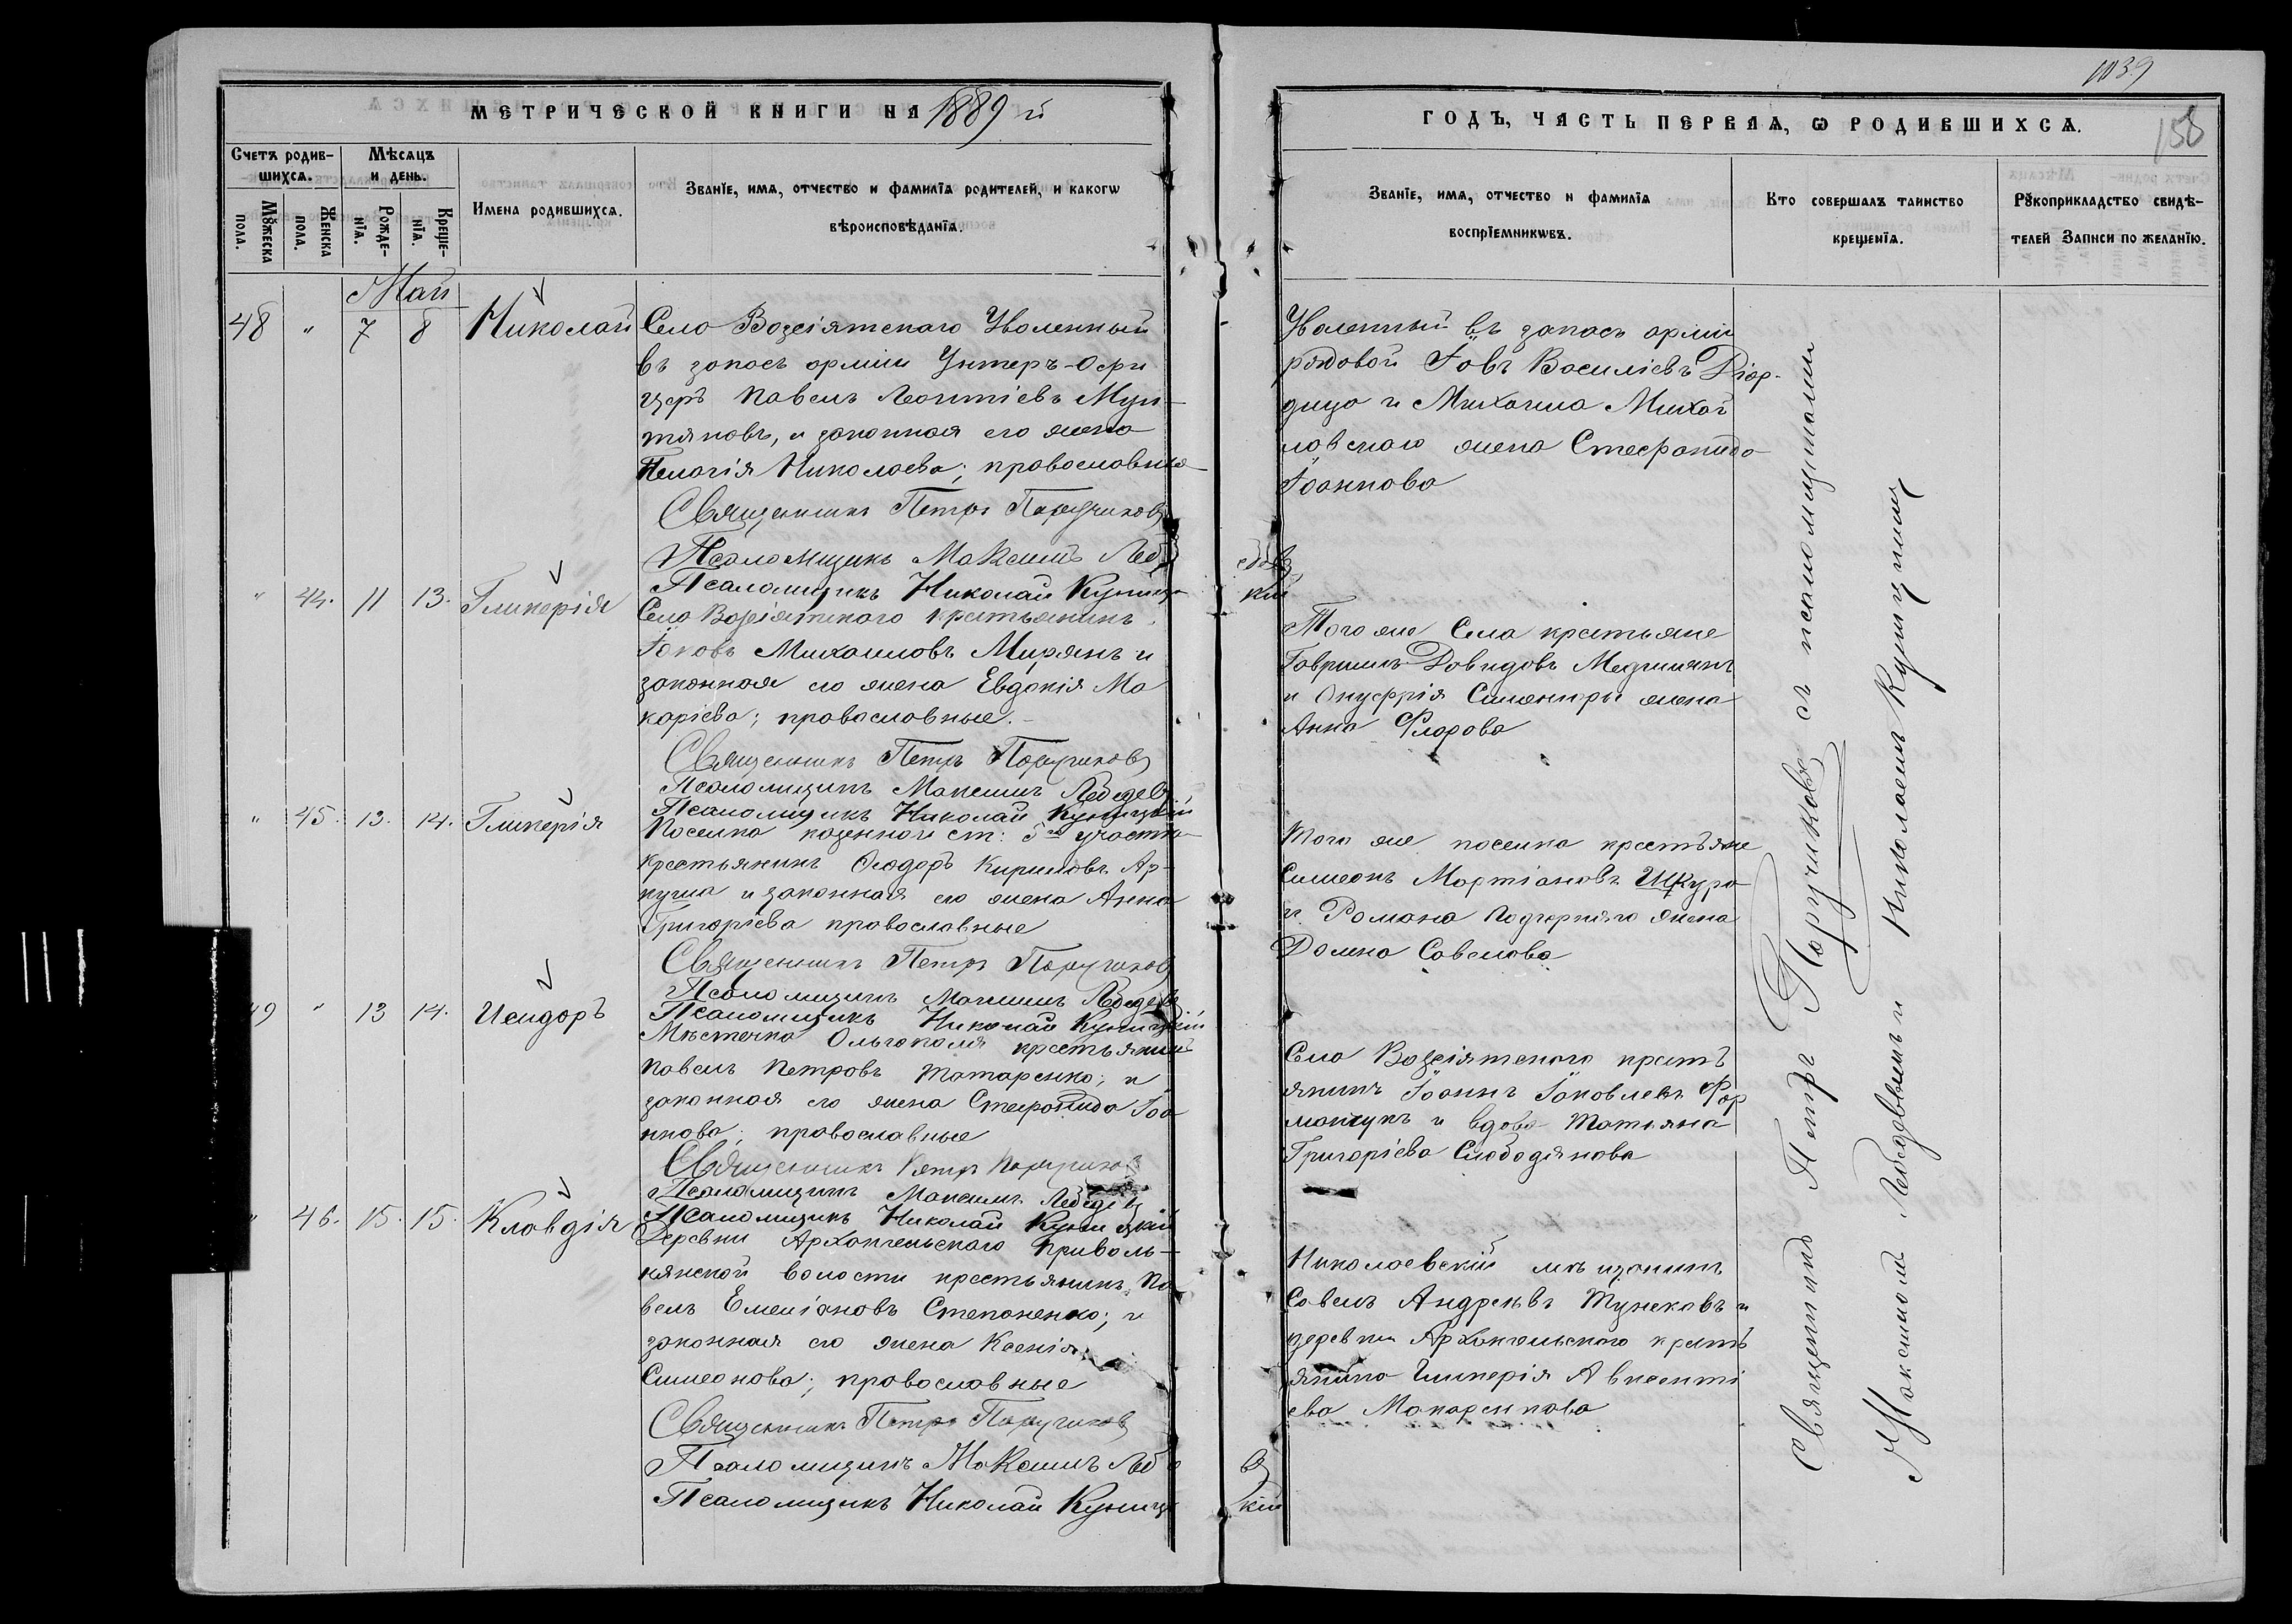 1039
158
МЕТРИЧЕСКОЙ КНИГИ НА 1889 й
ГОДЪ, ЧАСТЬ ПЕРВАЯ, Ѡ РОДИВШИХСЯ.
Счетъ родив-
шихся.
Мꙋжеска
пола.
Женска
пола.
Мѣсяцъ
и день.
Рожде-
нїя.
Креще-
нїя.
Имена родившихся.
Званїе, имя, отчество и фамилїя родителей, и какогѡ
вѣроисповѣданїя.
Званїе, имя, отчество и фамилїя
воспрїемникѡвъ.
Кто совершалъ таинство
крещенїя.
Рꙋкоприкладство свидѣ-
телей записи по желанїю.
Май
48 " 7 8 Николай
Село Возсіятскаго Уволенный
въ запасъ арміи Унтеръ-Офи
церъ Павелъ Леонтіевъ Мун-
тяновъ, и законная его жена
Пелагія Николаева; православные
Священникъ Петръ Поручиковъ
Псаломщикъ Максимъ Лебедевъ
Псаломщикъ Николай Куницкій
Уволенный въ запасъ арміи
рядовой Іовъ Василіевъ Діор-
дица и Михаила Михай
ловскаго жена Стефанида
Іоаннова
" 44. 11 13. Гликерія
Села Возсіятскаго крестьянинъ
Іаковъ Михаиловъ Мирянъ и
законная его жена Евдокія Ма
каріева; православные.
Священникъ Петръ Поручиковъ
Псаломщикъ Максимъ Лебедевъ
Псаломщикъ Николай Куницкій
Того же Села крестьяне
Гавріилъ Давидовъ
и Онуфрія жена
Анна Флорова
" 45. 13. 14. Гликерія
Поселка казенной ст: 5го участка
крестьянинъ Ѳеодоръ Кириловъ Ар-
и законная его жена Анна
Григоріева православные
Священникъ Петръ Поручиковъ
Псаломщикъ Максимъ Лебедевъ
Псаломщикъ Николай Куницкій
Того же поселка крестьяне
Симеонъ Мартіановъ Шкура
и Романа Подгорняго жена
Домна Савелова
49 " 13 14. Исидоръ
Мѣстечка Ольгополя крестьянинъ
Павелъ Петровъ Татаренко; и
законная его жена Стефанида Іоа
ннова; православные
Священникъ Петръ Поручиковъ
Псаломщикъ Максимъ Лебедевъ
Псаломщикъ Николай Куницкій
Села Возсіятскаго кресть
янинъ Іоаннъ Іаковлевъ Фор
манчукъ и вдова Татьяна
Григоріева Слободянова
" 46. 15. 15. Клавдія
Деревни Архангельскаго Приволь-
нянской волости крестьянинъ Па
велъ Емеліановъ Степаненко; и
законная его жена Ксенія
Симеонова; православные
Священникъ Петръ Поручиковъ
Псаломщикъ Максимъ Лебедевъ
Псаломщикъ Николай Куницкій
Николаевскій мѣщанинъ
Савелъ Андреевъ и
деревни Архангельскаго кресть
янина Гликерія Авксенті
ева Макаренкова
Священникъ Петръ Поручиковъ съ псаломщиками
Максимомъ Лебедевымъ и Николаемъ Куницкимъ